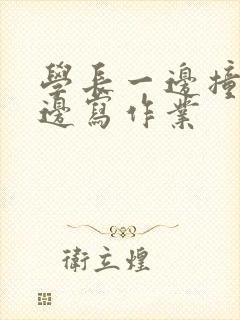 學長一邊撞
邊寫作業
衛立煌